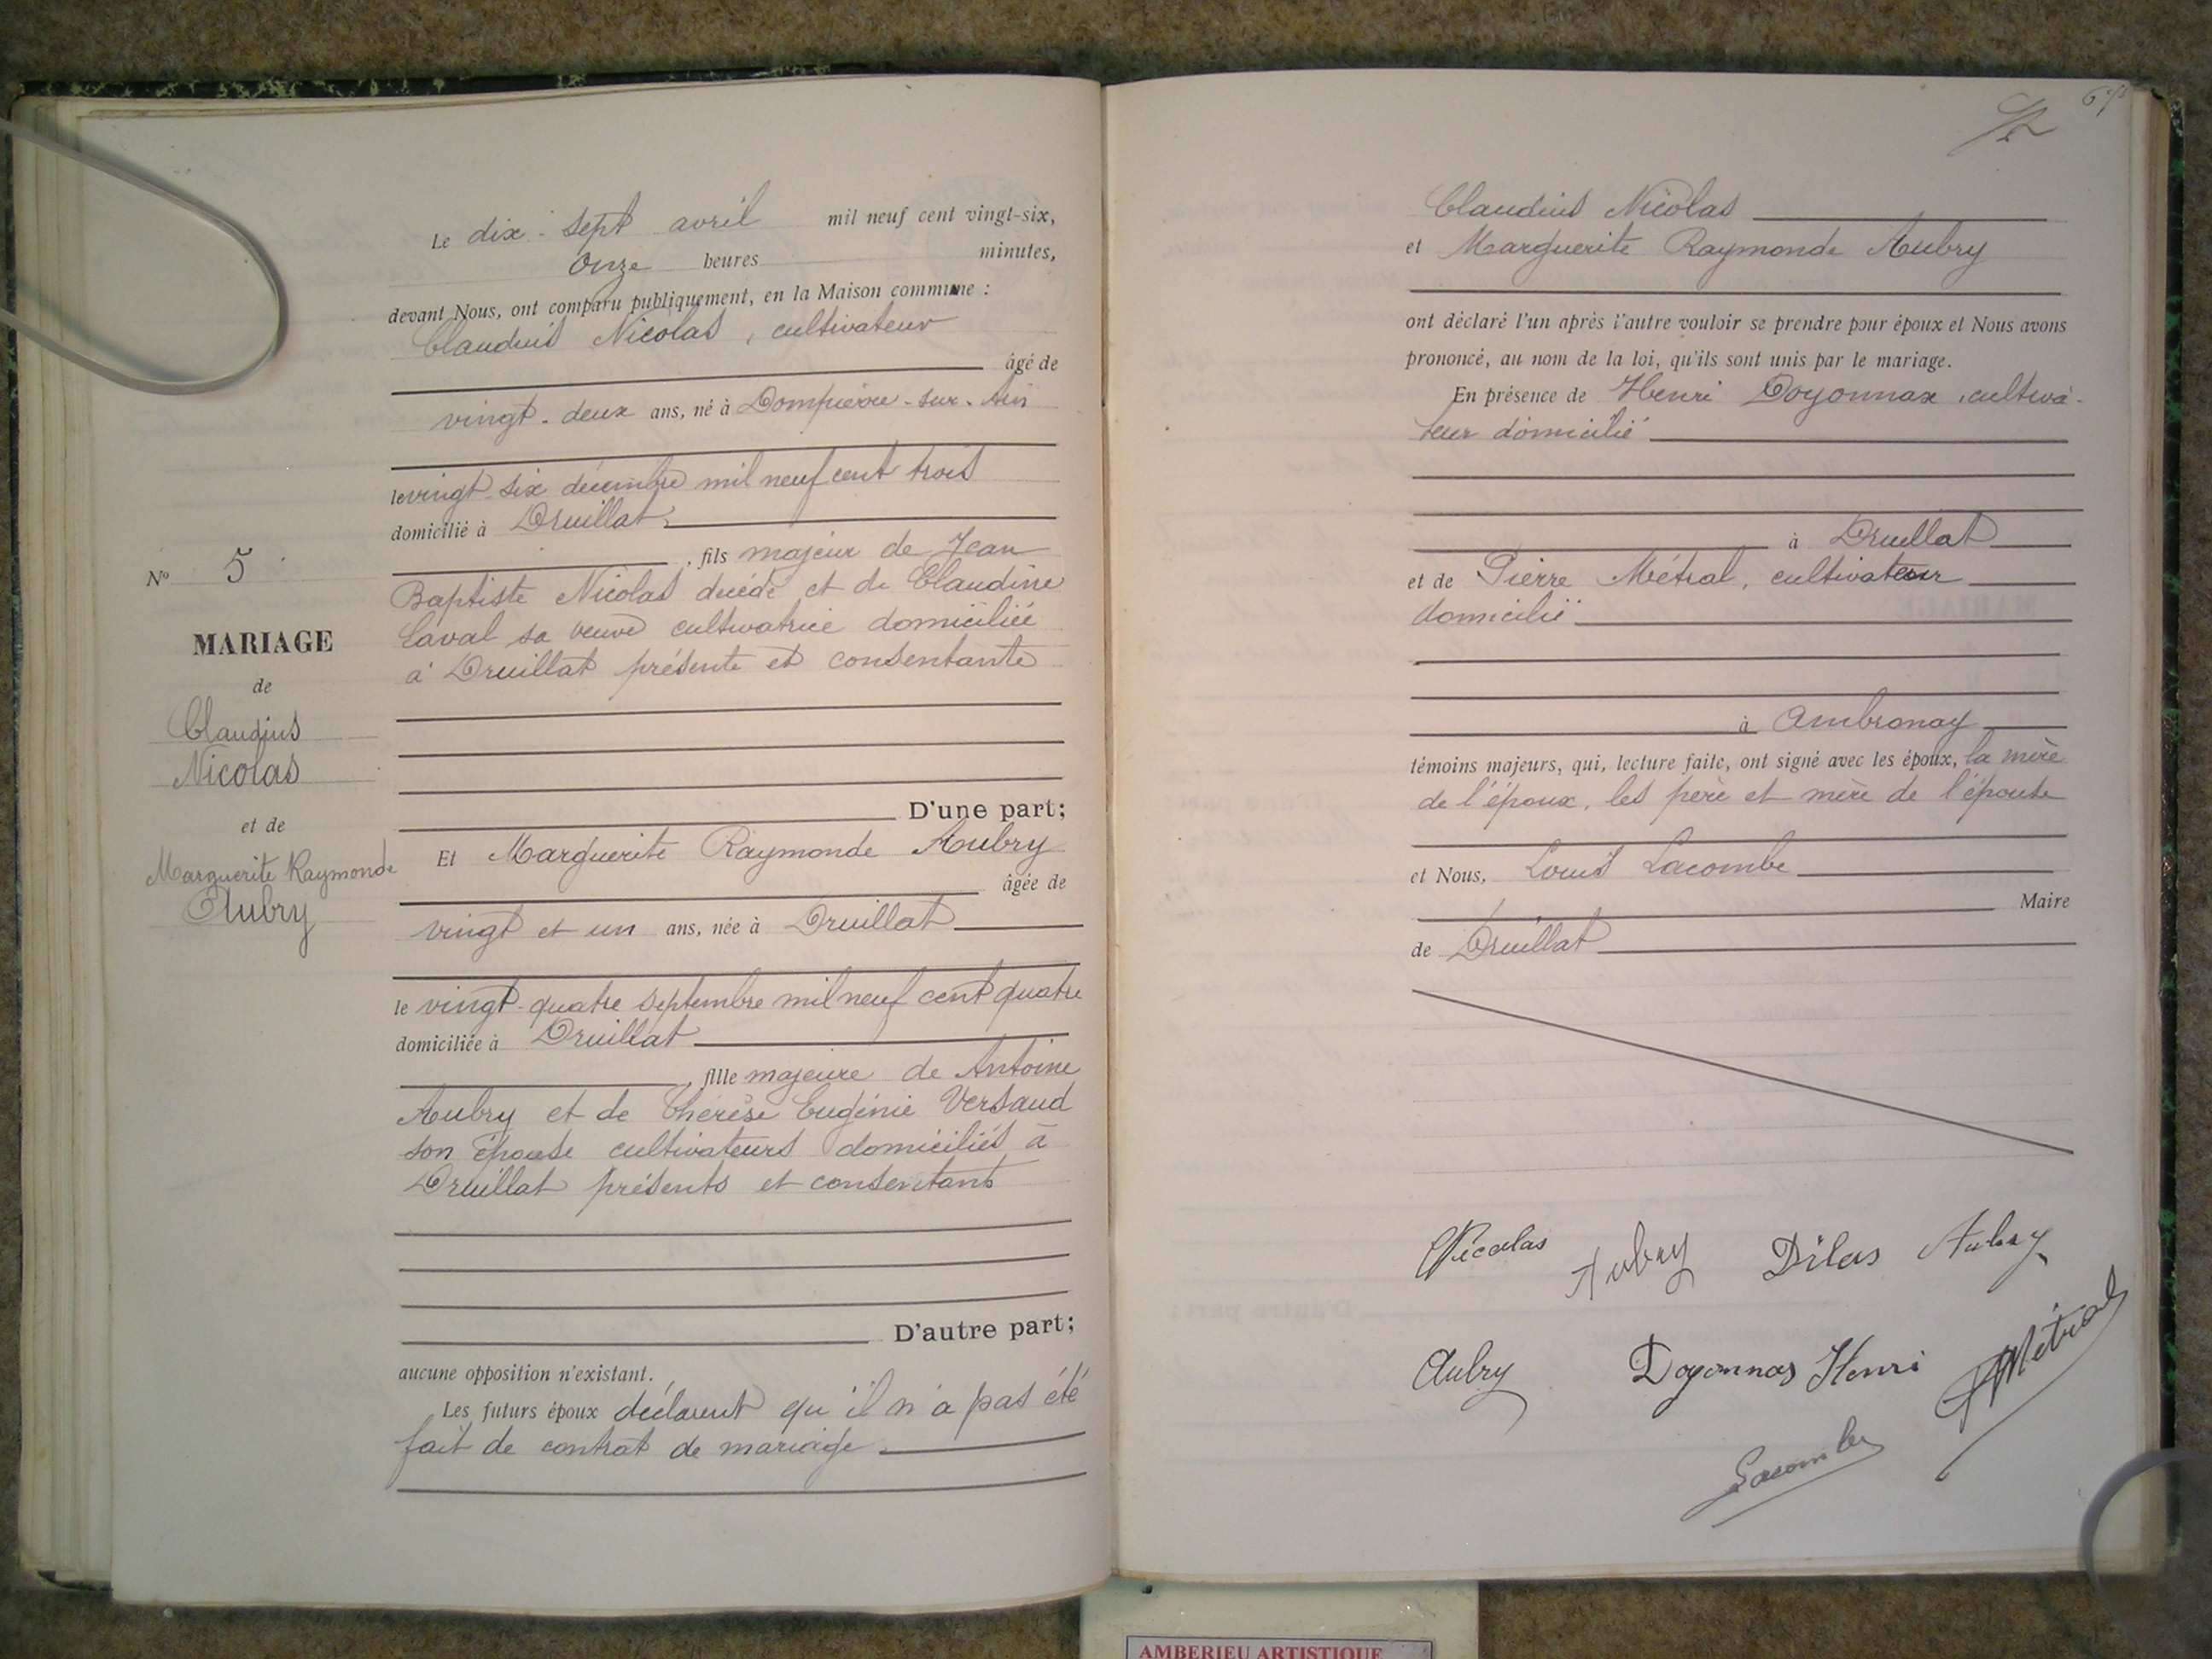 Le dix-sept avril mil neuf cent vingt-six,
onze heures minutes,
devant Nous, ont comparu publiquement, en la Maison commune :
Claudius Nicolas, cultivateur
âgé de
vingt-deux ans, né à Dompierre-sur-Ain
le vingt-six décembre mil neuf cent trois
domicilié à Druillat,
, fils majeur de Jean
Baptiste Nicolas décédé et de Claudine
Laval sa veuve cultivatrice domiciliée
à Druillat présente et consentante
D'une part;
Et Marguerite Raymonde Aubry
âgée de
vingt et un ans, née à Druillat
le vingt-quatre septembre mil neuf cent quatre
domiciliée à Druillat
, fille majeure de Antoine
Aubry et de Thérèse Eugénie Versaud
son épouse cultivateurs domiciliés à
Druillat présents et consentants
D'autre part;
aucune opposition n'existant.
Les futurs époux déclarent qu'il n'a pas été
fait de contrat de mariage
No 5
MARIAGE
de
Claudius
Nicolas
et de
Marguerite Raymonde
Aubry
Claudius Nicolas
et Marguerite Raymonde Aubry
ont déclaré l'un après l'autre vouloir se prendre pour époux et Nous avons
prononcé, au nom de la loi, qu'ils sont unis par le mariage.
En présence de Henri Doyonnax, cultiva-
teur domicilié
à Druillat
et de Pierre Métral, cultivateur
domicilié
à Ambronay
témoins majeurs, qui, lecture faite, ont signé avec les époux, la mère
de l'époux, les père et mère de l'épouse
et Nous, Louis Lacombe
Maire
de Druillat
Nicolas Aubry Dilas Aubry
Aubry Doyonnas Henri Métral
Lacombe
AMBERIEU ARTISTIQUE